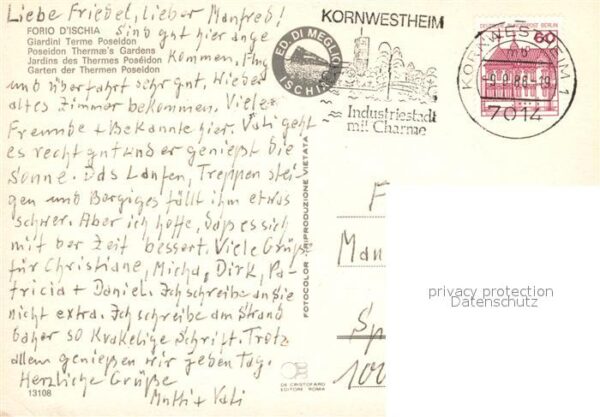 Liebe Friedel, lieber Manfred!
FORIO D'ISCHIA
Giardini Terme Poseidon
Poseidon Thermæ's Gardens
Jardins des Thermes Poséidon
Garten der Thermen Poseidon
Sind gut hier ange
kommen. Flug
und Überfahrt sehr gut. Wieder
altes Zimmer bekommen. Viele
Freunde + Bekannte hier. Vati geht
es recht gut und er genießt die
Sonne. Das Laufen, Treppen stei-
gen und Bergiges fällt ihm etwas
schwer. Aber ich hoffe, daß es sich
mit der Zeit bessert. Viele Grüße
für Christiane, Micha, Dirk, Pa-
tricia + Daniel. Ich schreibe an Sie
nicht extra. Ich schreibe am Strand
daher so krakelige Schrift. Trotz
allem genießen wir jeden Tag.
Herzliche Grüße
Mutti + Vati
13108
ED. DI MEGLIO
ISCHIA
FOTOCOLOR - RIPRODUZIONE VIETATA
DE CRISTOFARO
EDITORI ROMA
KORNWESTHEIM
Industriestadt
mit Charme
KORNWESTHEIM 1
mb
-9.9.86-19
7014
60
POST BERLIN
F
Man
Sp
100
privacy protection
Datenschutz